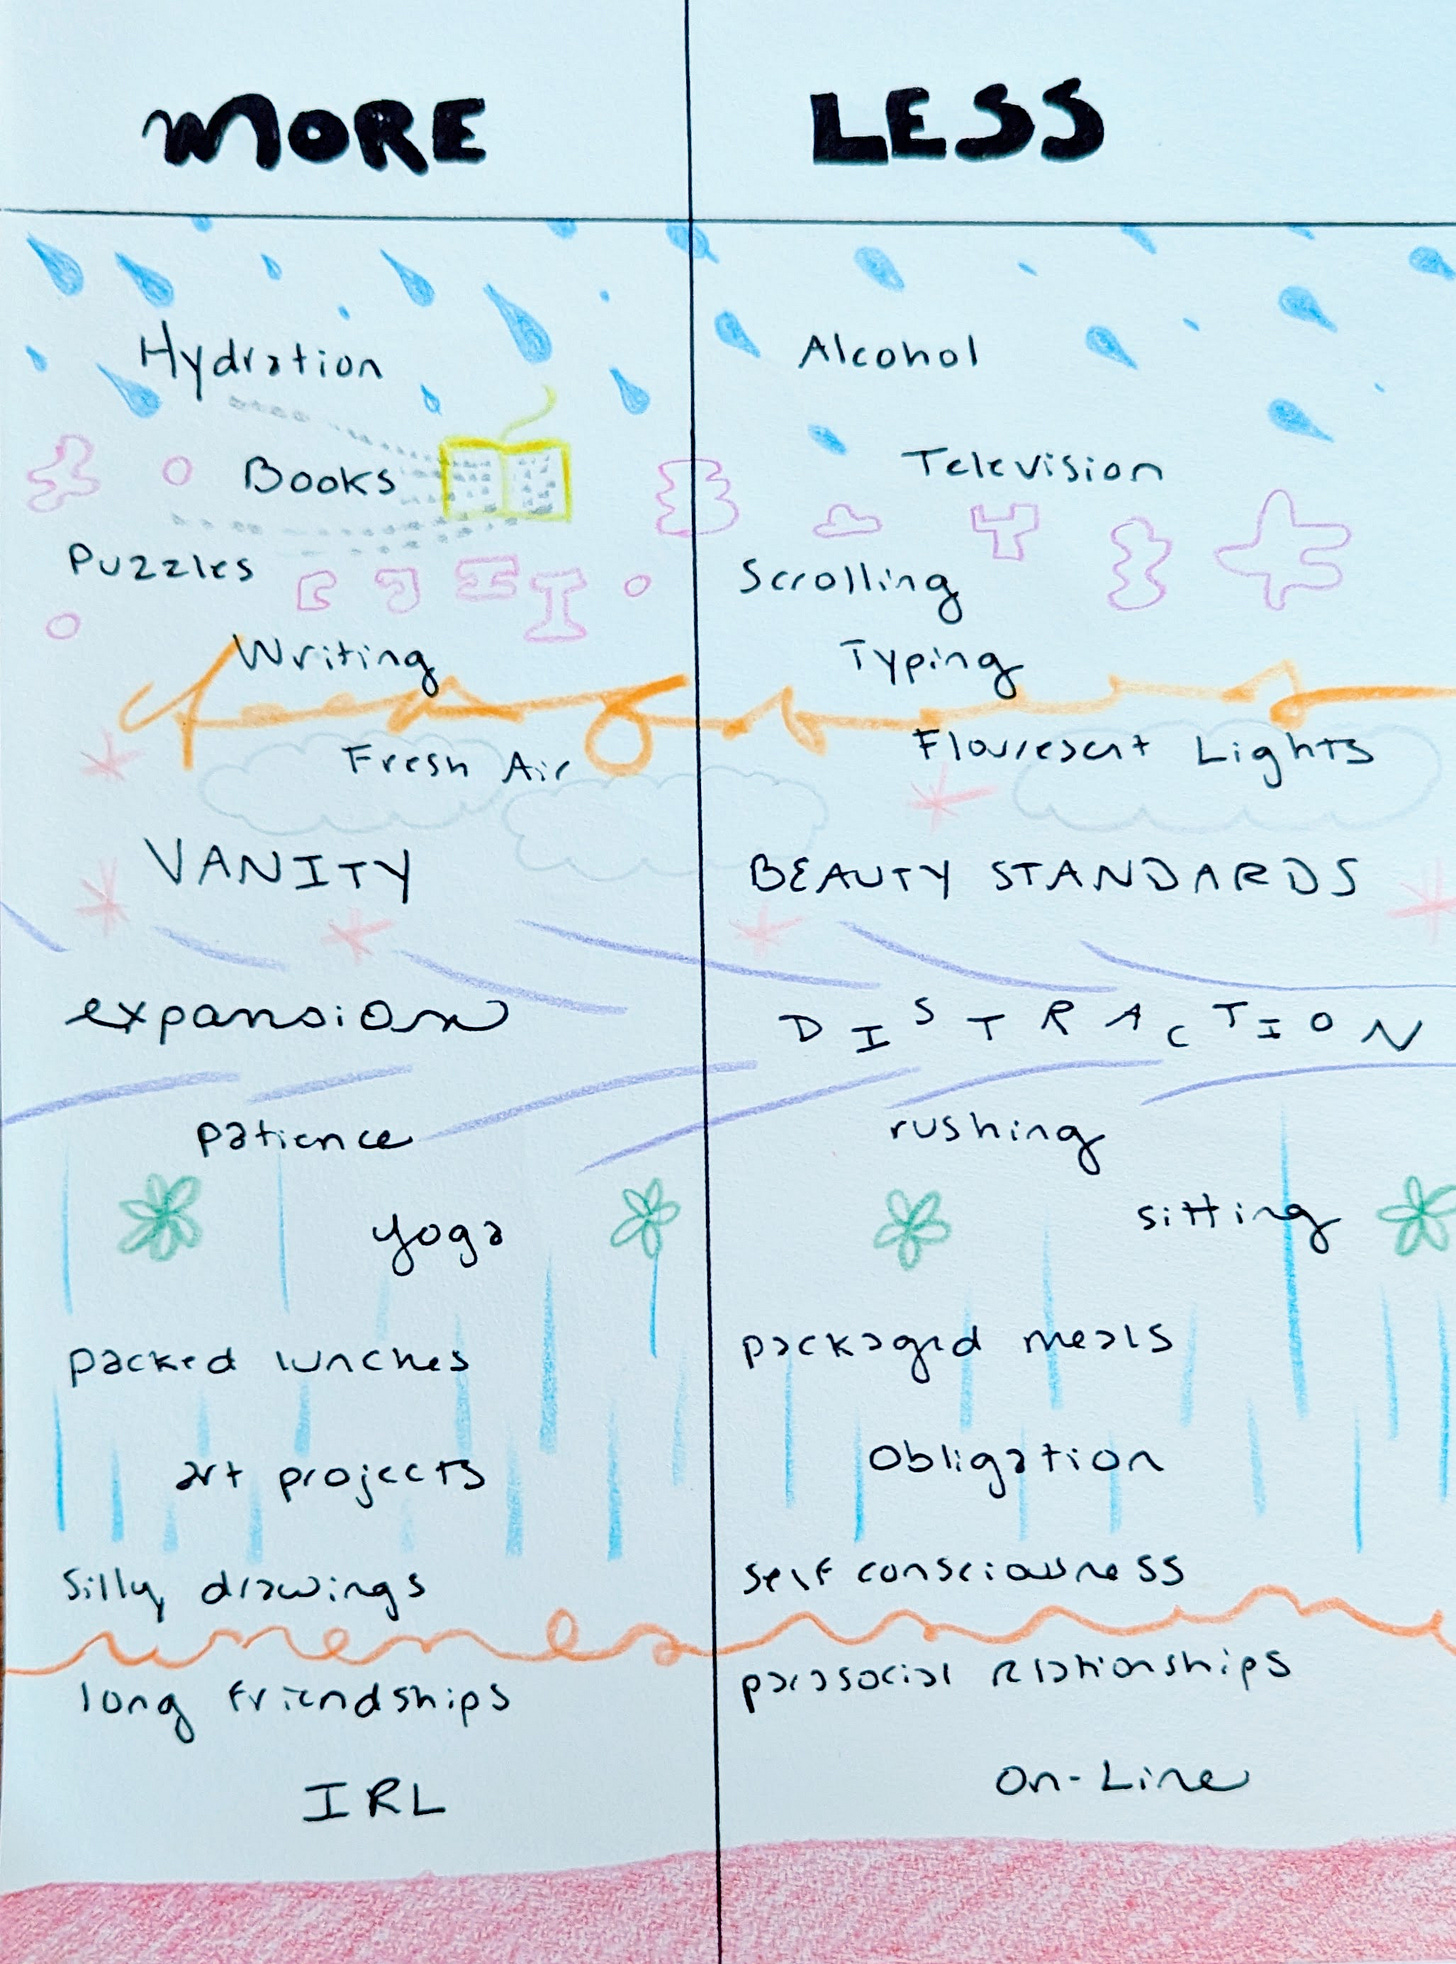 MORE
LESS
Hydration
Alcohol
Books
Television
Puzzles
Scrolling
Writing
Typing
Fresh Air
Flourescent Lights
VANITY
BEAUTY STANDARDS
expansion
DISTRACTION
patience
rushing
yoga
sitting
packed lunches
packaged meals
art projects
obligation
silly drawings
self consciousness
long friendships
parasocial relationships
IRL
on-Line